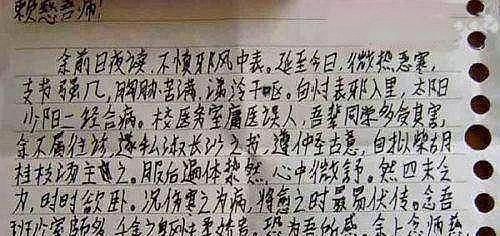 慈吾师!
余前日夜读,不慎邪风中表。延至今日,微热恶寒,
支节强几,胸胁苦满,满冷干呕。自忖表邪入里,太阳
少阳二经合病。校医务室庸医误人,吾辈同学多受其害,
余不屑往诊,遂私淑长沙之书,遵仲圣古意,自拟柴胡
桂枝汤主之。服后遍体漐然,心中微舒。然四末乏
力,时时欲卧。况伤寒之为病,将愈之时最易伏传。念吾
班 室颇多,千金之 恐为吾所感,余上念师慈